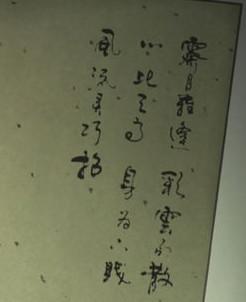 霽月難逢 彩雲易散
心比天高 身為下賤
風流灵巧招